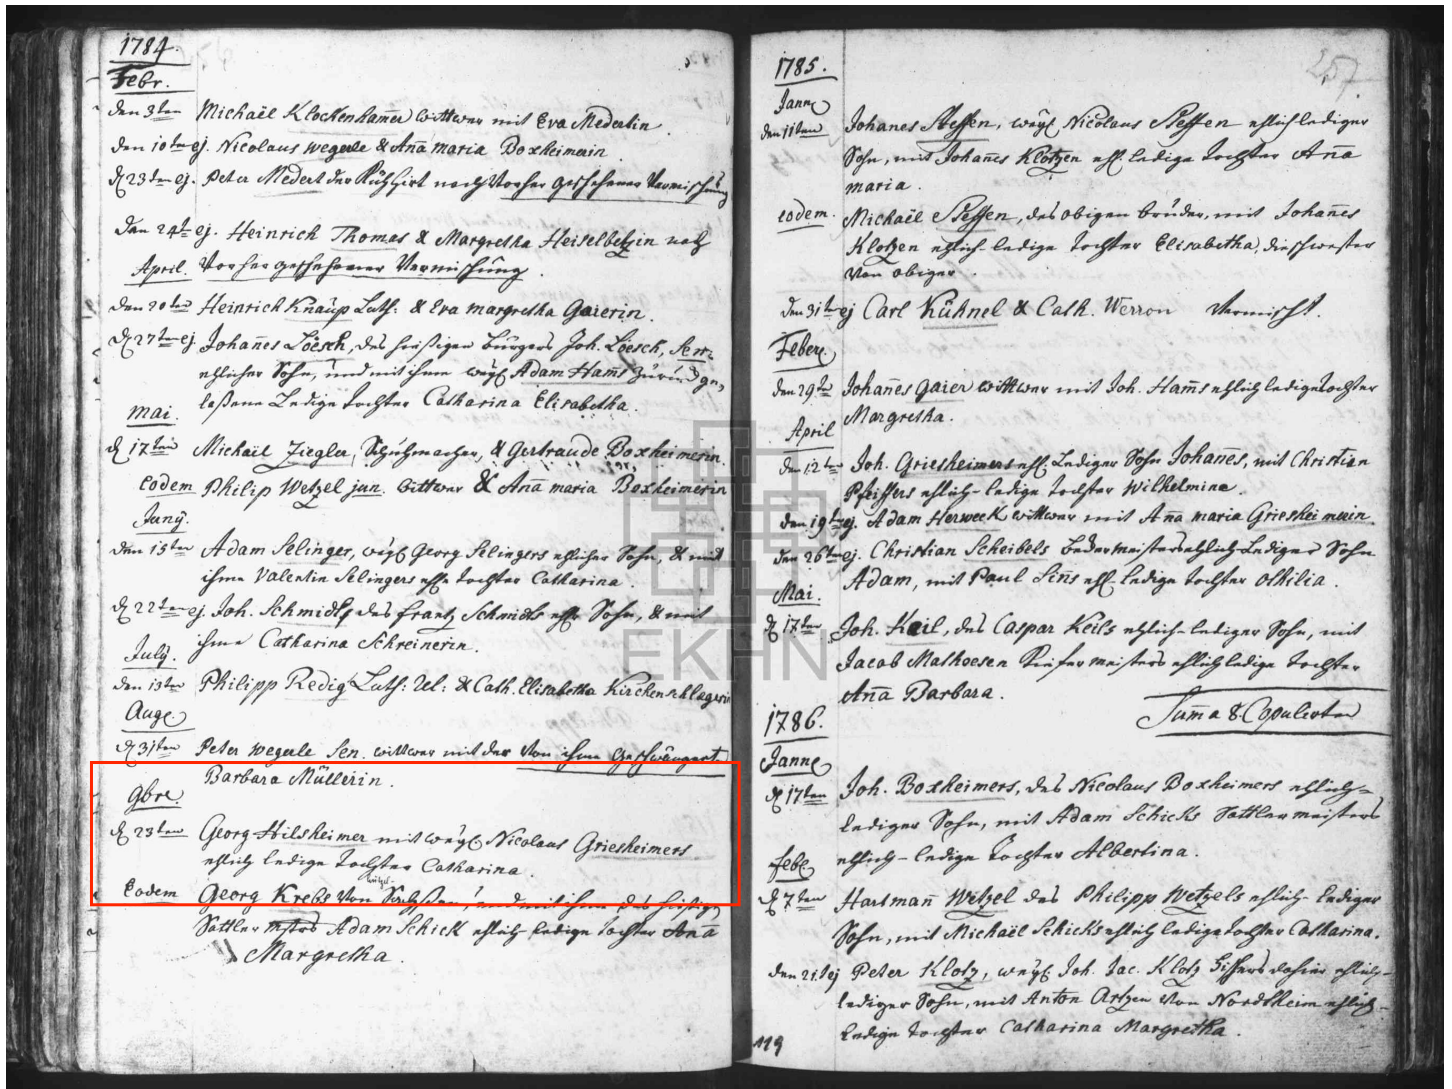 1784.
Febr.
den 3ten Michaël Klockenhamer wittwer mit Eva Mederlin
den 10ten ej. Nicolaus Wegerle & Anna maria Boxheimerin.
d 23ten ej. Peter Medert der Kühhirt nach Vorher geschehener Vermischung
den 24t ej. Heinrich Thomas & Margretha Heiselbetzin nach
April. Vorher geschehener Vermischung.
den 20ten Heinrich Knaup Luth: & Eva margretha Gaierin.
d 27ten ej. Johannes Löesch, des hiesigen bürgers Joh. Löesch, Sen:
ehlicher Sohn, und mit ihm weyl Adam Hams zurück ge,
laßene Ledige tochter Catharina Elisabetha.
Mai.
d 17ten Michaël Ziegler, Schuhmacher, & Gertraude Boxheimerin.
Eodem Philip Wetzel jun. wittwer & Anna maria Boxheimerin
Juny.
den 15ten Adam Selinger, weyl Georg Selingers ehlicher Sohn, & mit
ihm Valentin Selingers ehl tochter Catharina.
d 22ten ej. Joh. Schmidt, des frantz Schmidts ehl Sohn, & mit
ihm Catharina Schreinerin.
July.
den 13ten Philipp Redig Luth: & Cath. Elisabetha Kirchenschlagerin
Aug
d 31ten Peter Wegerle Sen. wittwer mit der Von ihm geschwängert.
Barbara Müllerin.
9bre.
d 23ten Georg Hilsheimer mit weyl Nicolaus Griesheimers
ehlich ledige tochter Catharina.
Eodem Georg Krebs Von und mit ihm des hiesigen
Sattler Mstrs Adam Schick ehlich ledige tochter Anna
Margretha.
257
1785.
Jann
den 11ten Johanes Steffen, weyl Nicolaus Steffen ehlich lediger
Sohn, mit Johanes Klotzen ehl. ledige tochter Anna
maria.
eodem. Michaël Steffen, des obigen bruder, mit Johanes
Klotzen ehlich-ledige tochter Elisabetha, die schwester
Von obiger.
den 31ten ej Carl Kühnel & Cath. Werron Vermischt.
Feber
den 29te Johannes Gaier wittwer mit Joh. Hams ehlich ledige tochter
Margretha.
April
den 12ten Joh. Griesheimers ehl. Lediger Sohn Johanes, mit Christian
Pfeiffers ehlich-ledige tochter Wilhelmine.
den 19ten ej. Adam Herweck wittwer mit Anna maria Griesheimerin.
den 26ten ej. Christian Scheibels bedermeisters ehlich Lediger Sohn
Adam, mit Paul Sinns ehl. ledige tochter Othilia.
Mai.
d 17ten Joh. Keil, des Caspar Keils ehlich-lediger Sohn, mit
Jacob Mathoesen Kiefermeisters ehlich ledige tochter
Anna Barbara.
Suma 8. Copulirte
1786.
Jann
d 17ten Joh. Boxheimers, des Nicolaus Boxheimers ehlich-
lediger Sohn, mit Adam Schicks Sattlermeisters
ehlich-ledige tochter Albertina.
Feb
d 7ten Hartmann Wetzel des Philipp Wetzels ehlich-lediger
Sohn, mit Michaël Schicks ehlich ledige tochter Catharina.
den 21. ej Peter Klotz, weyl Joh. Jac. Klotz dahier ehlich-
lediger Sohn, mit Anton Artzen Von Nordtheim ehlich-
ledige tochter Catharina Margretha.
119
EKHN